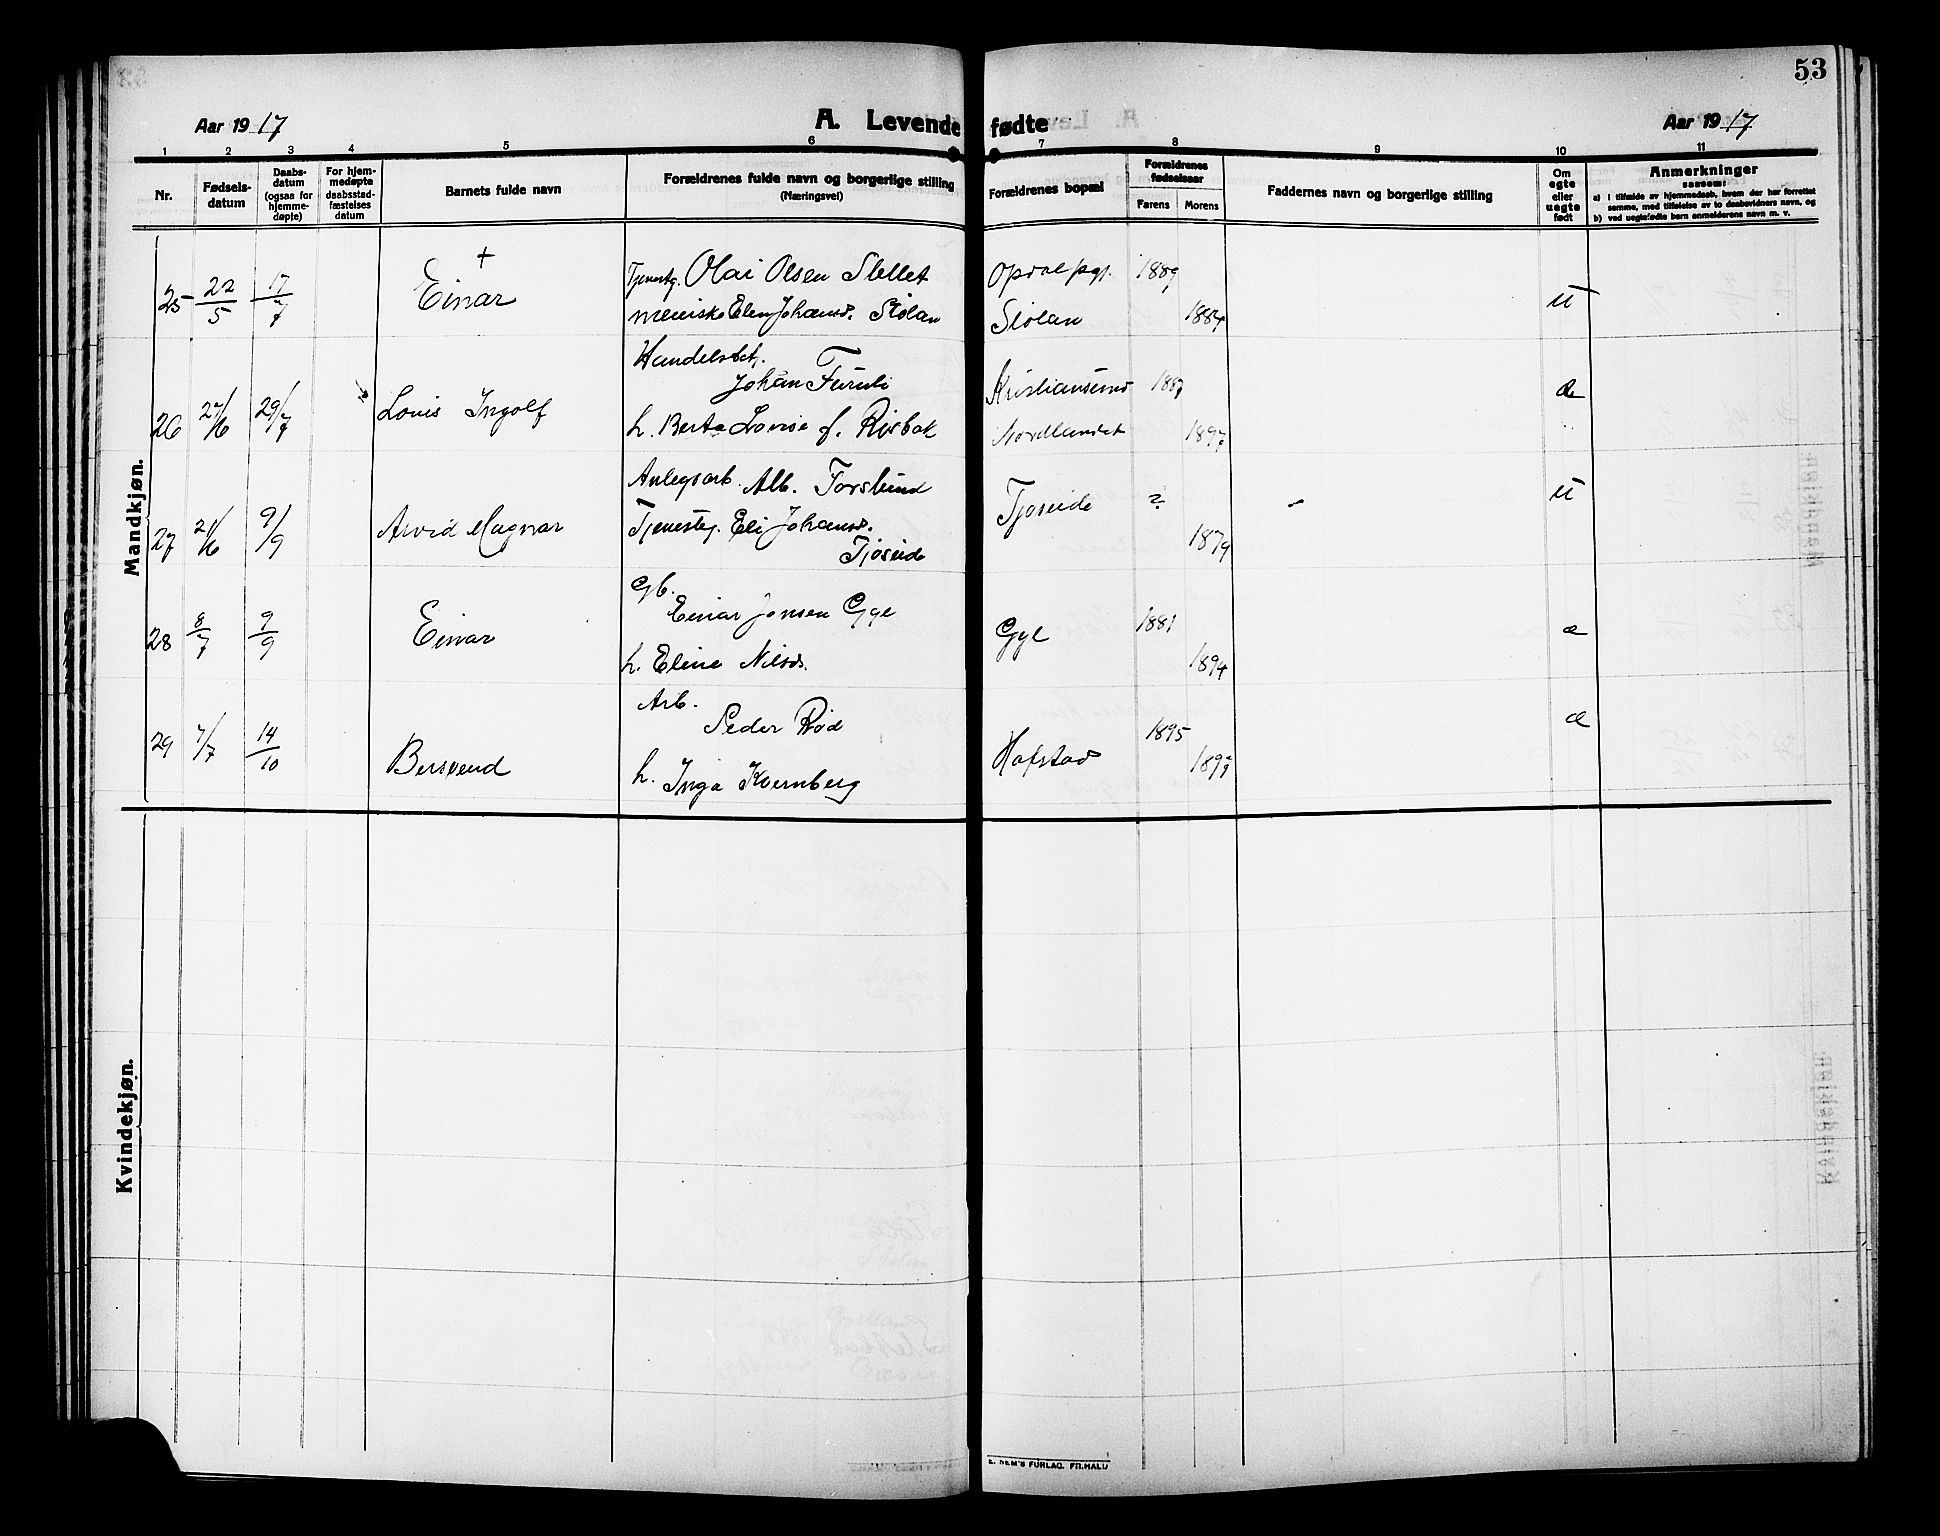 53
Aar 1917
A. Levende fødte
Aar 1917
1 2 3 4 5 6 7 8 9 10 11
Nr.
Fødsels-
datum
Daabs-
datum
(ogsaa for
hjemme-
døpte)
For hjem-
medøpte
daabsstad-
fæstelses
datum
Barnets fulde navn
Forældrenes fulde navn og borgerlige stilling
(Næringsvei)
Forældrenes bopæl
Forældrenes
fødselsaar
Farens
Morens
Faddernes navn og borgerlige stilling
Om
egte
eller
uegte
født
Anmerkninger
saasom:
a) i tilfælde av hjemmedaab, hvem der har forrettet
samme, med tilføielse av to daabsvidners navn, og
b) ved uegtefødte barn anmelderens navn m. v.
Mandkjøn.
25 22/5 17/7 + Einar
Tjenestg. Olai Olsen Slettet
menniske Elen Johansd. Stølan
Opdal pgj. 1889
Stølan 1884
u
26 27/6 29/7 Louis Ingolf
Handelsbet.
Johan Furuli
h. Berta Lovise f. Risbak
Kristiansund 1887
Nordlandet 1897
æ
27 21/6 9/9 Arvid Magnar
Anlegsarb. Alb. Forslund
Tjenesteg. Eli Johansd.
Tjøseide
Tjøseide ? 1879
u
28 8/7 9/9 Einar
Gb.
Einar Jonsen Gyl
h. Eline Nilsd.
Gyl 1881
1894
æ
29 7/7 14/10 Bersvend
Arb.
Peder Rød
h. Inga Kvernberg
Hafstad 1895
æ
Kvindekjøn.